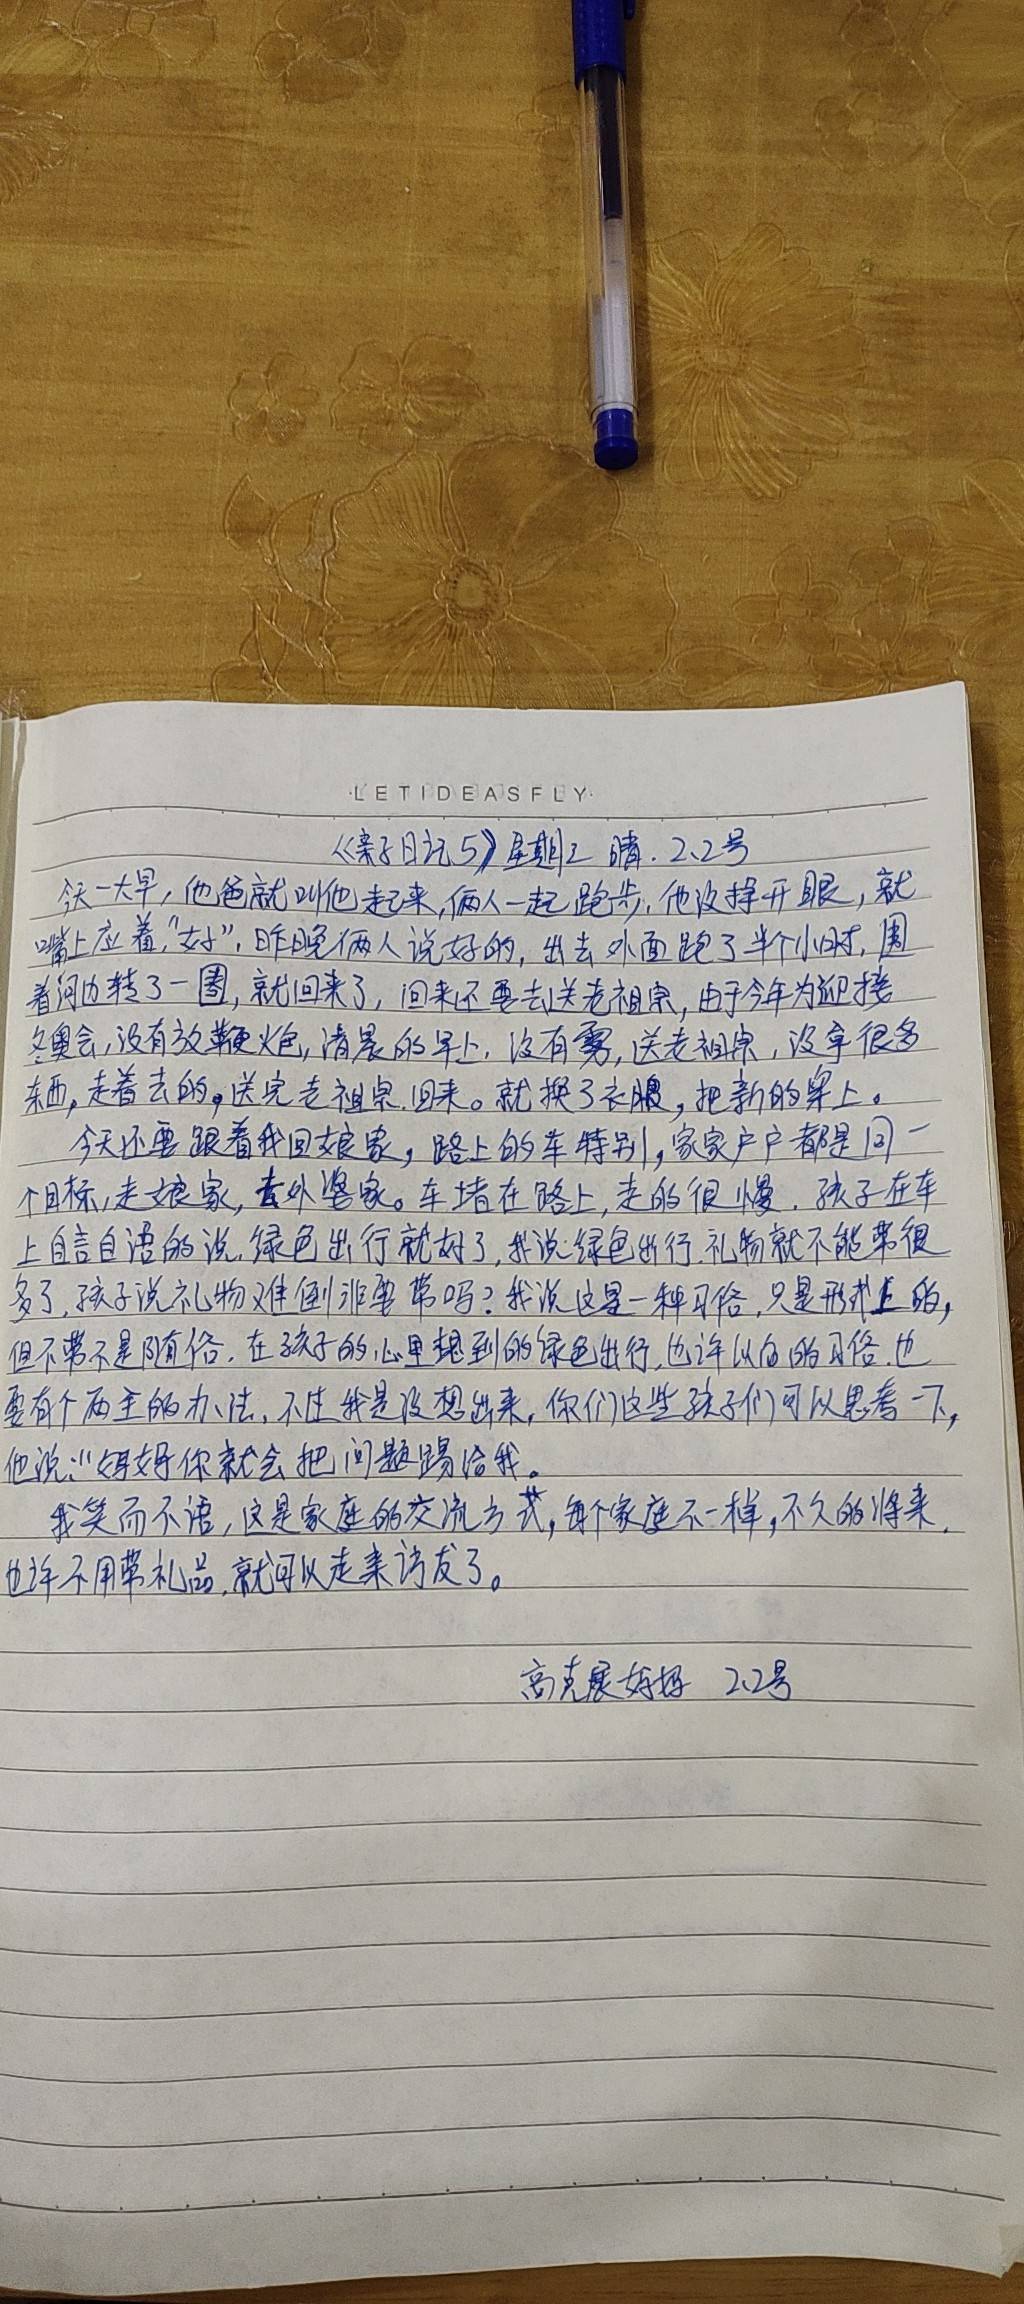 ·LETIDEASFLY·
《亲子日记5》星期三 晴.2.2号
今天一大早,他爸就叫他起来,俩人一起跑步.他没择开眼,就
嘴上应着,"好",昨晚俩人说好的,出去外面跑了半个小时,围
着河边转了一圈,就回来了,回来还要去送老祖宗,由于今年为迎接
冬奥会,没有放鞭炮,清晨的早上,没有雾,送老祖宗,没拿很多
东西,走着去的,送完老祖宗.回来。就换了衣服,把新的穿上。
今天还要跟着我回娘家,路上的车特别,家家户户都是同一
个目标,走娘家,去外婆家。车堵在路上,走的很慢.孩子在车
上自言自语的说.绿色出行就好了,我说:绿色出行.礼物就不能带很
多了,孩子说礼物难倒非要带吗?我说这是一种习俗,只是形式上的,
但不带不是随俗.在孩子的心里想到的绿色出行,也许以后的习俗.也
要有个两全的办法,不过我是没想出来,你们这些孩子们可以思考一下,
他说:"妈妈你就会把问题踢给我。
我笑而不语,这是家庭的交流方式,每个家庭不一样,不久的将来,
也许不用带礼品,就可以走亲访友了。
高克展妈妈 2.2号